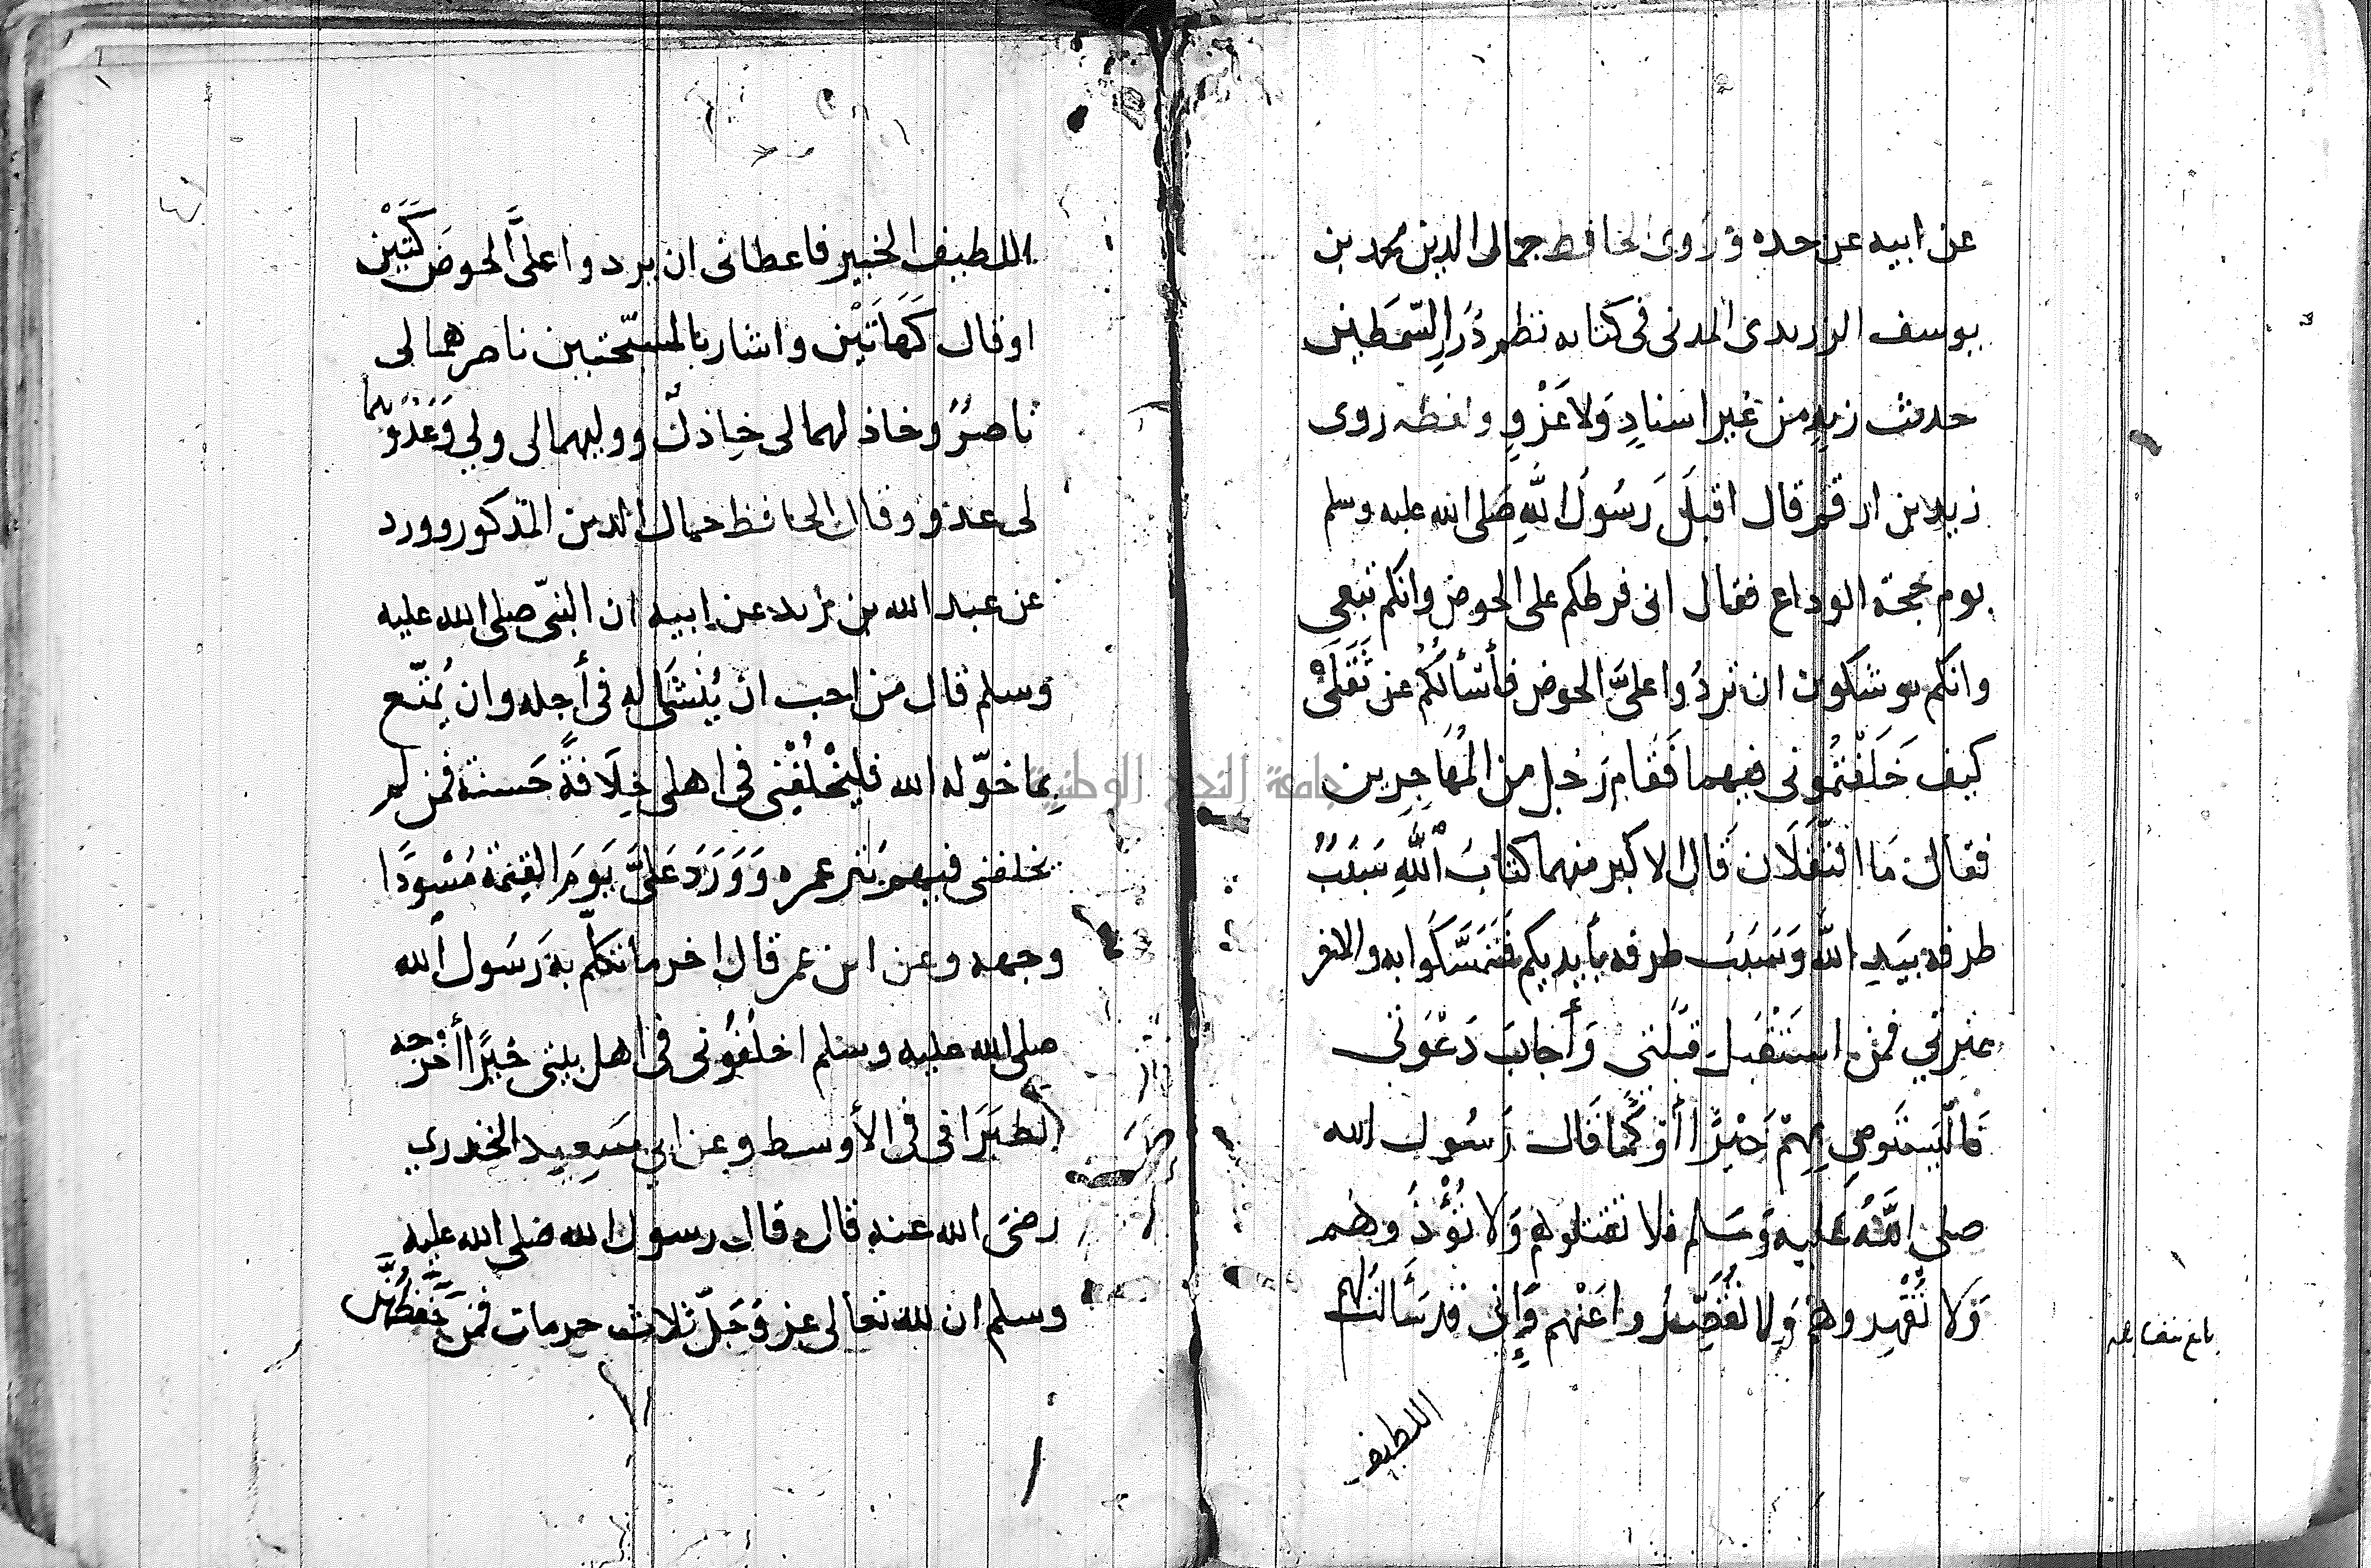 عن ابيه عن جده وروى الحافظ جمال الدين محمد بن
يوسف الزرندى المدنى فى كتابه نظم دُرَرِ السّمطين
حديث زيدٍ من غير اسنادٍ وَلا عَزْوٍ ولفظه روى
زيد بن ارقم قال اقبلَ رَسُولُ اللَّهِ صَلى الله عليه وسلم
يوم حجة الوداع فقال انى فرطكم على الحوض وانكم تبعى
وانكم يوشكون ان تردُوا علىَّ الحوض فأسألُكُم عن ثَقَلَىْ
كيف خَلَفْتمُونى فيهما فَقَام رَجُل من المُهَاجِرِين
فقال مَا الثَّقَلَان قَال الاكبر منهما كتابَ اللَّهِ سَبَبٌ
طرفه بيَدِ اللَّه وَسَبَبٌ طرفه بأيديكم فَتَمَسَّكُوا به والاصغر
عترتي فمن استَقْبَل قبْلَتى وَأجابَ دَعْوَتى
فَالْيَستَوصِ بِهِمْ خَيْرًا أَوْ كَمَا قَال رَسُول الله
صلى اللَّهُ عَليه وَسَلم فلا تقتلوهم وَلا تُؤْذُوهم
وَلا تُقْهِروهم وَلا تُقَصِّرُوا عَنْهم وَإِنى قد سَألتُ لهم
اللطيف
بلغ مقابله
اللطيف الخبير فاعطانى ان يردوا علىَّ الحوضَ كَتَيْن
او قال كَهَاتَيْن واشار بالمسَبّحتين ناصرهما لى
ناصرٌ وخاذلهما لى خاذلٌ ووليهما لى ولي وَعَدُوهُما
لى عدو وقال الحافظ جمال الدين المذكور وورد
عن عبد الله بن زيد عن ابيه ان النبىّ صلى الله عليه
وسلم قال من احب ان يُنْسَأ له فى أجله وان يُمَتّع
بما خوّله الله فليَخْلُفْنِى فى اهلى خِلَافةً حَسنة فمن لم
يخلفنى فيهم بُتر عمره وَوَرَدَ عَلىَّ يَومَ القيمة مُسْوَدًّا
وجهه وعن ابن عمر قال اخر ما تكلّم به رَسُول الله
صلى الله عليه وسلم اخلفُونى فى اهل بيتى خَيْرًا أخرجه
الطبَرَانى فى الأوسط وعن ابي سَعِيد الخدري
رضىَ الله عنه قال قال رسول الله صَلى الله عليه
وسلم ان لله تعالى عز وَجَلّ ثلاث حرمات فمن حَفظهُنَّ
جامعة النجاح الوطنية